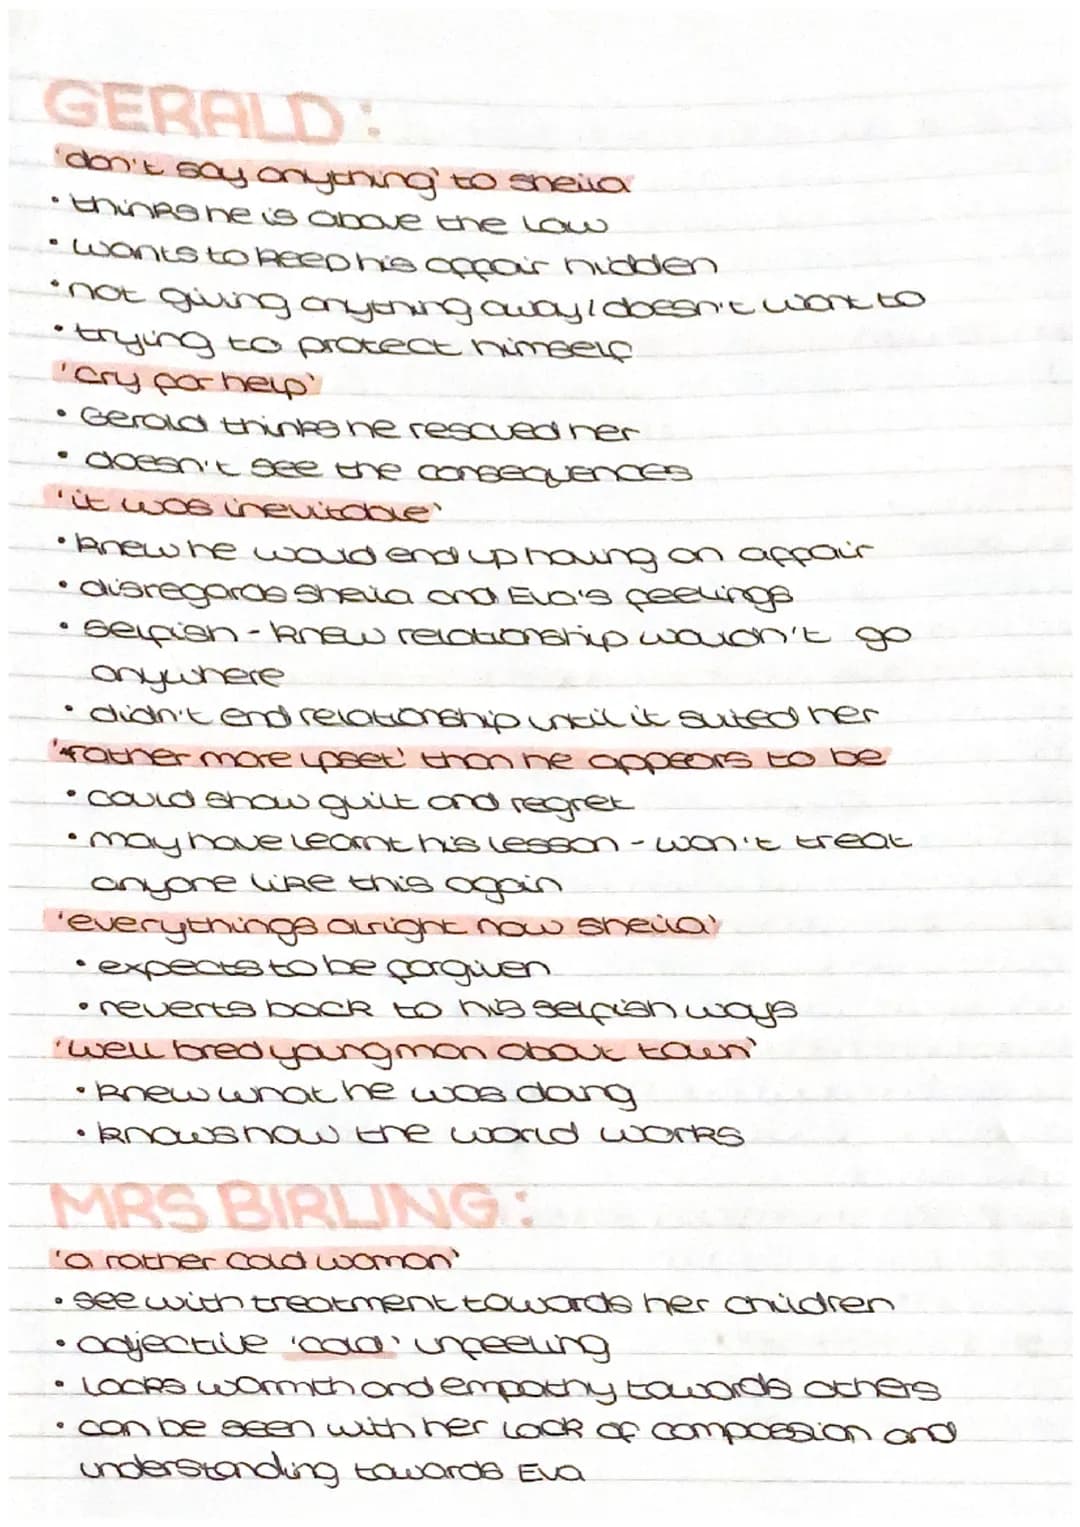 GERALD:
'don't say anything' to sheila
• thinks he is above the law
• wants to keep his affair hidden
• not giving anything away / doesn't want to
• trying to protect himself
'cry for help'
• Gerald thinks he rescued her
• doesn't see the consequences
'it was inevitable'
• knew he would end up having an affair
• disregards sheila and Eva's feelings
• selfish - knew relationship wouldn't go
anywhere
• didn't end relationship until it suited her
'rather more upset' than he appears to be
• could show guilt and regret
• may have learnt his lesson - won't treat
anyone like this again
'everythings alright now sheila'
• expects to be forgiven
• reverts back to his selfish ways
'well bred young man about town'
• knew what he was doing
• knows how the world works
MRS BIRLING:
'a rather cold woman'
• see with treatment towards her children
• adjective 'cold' unfeeling
• lacks warmth and empathy towards others
• can be seen with her lack of compassion and
understanding towards Eva